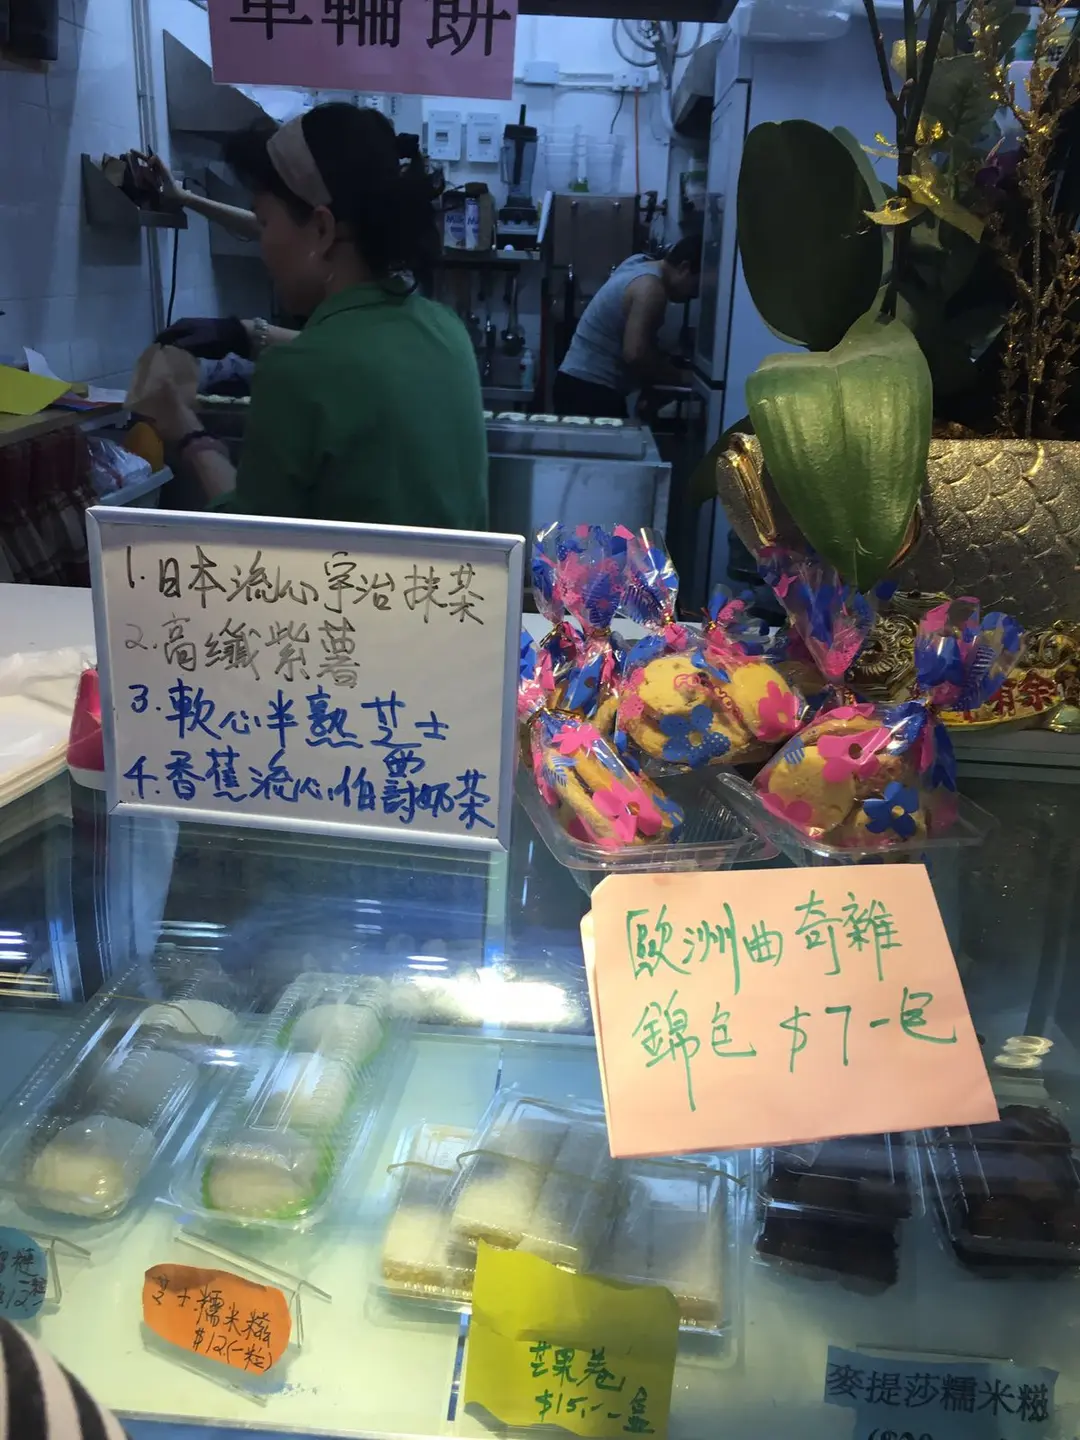 車輪餅
1.日本流心宇治抹茶
2.高纖紫薯
3.軟心半熟芝士
4.香蕉流心伯爵奶茶
歐洲曲奇雜
錦包 $7一包
芝士糯米糍
$12(一粒)
芒果卷
$15,一盒
麥提莎糯米糍